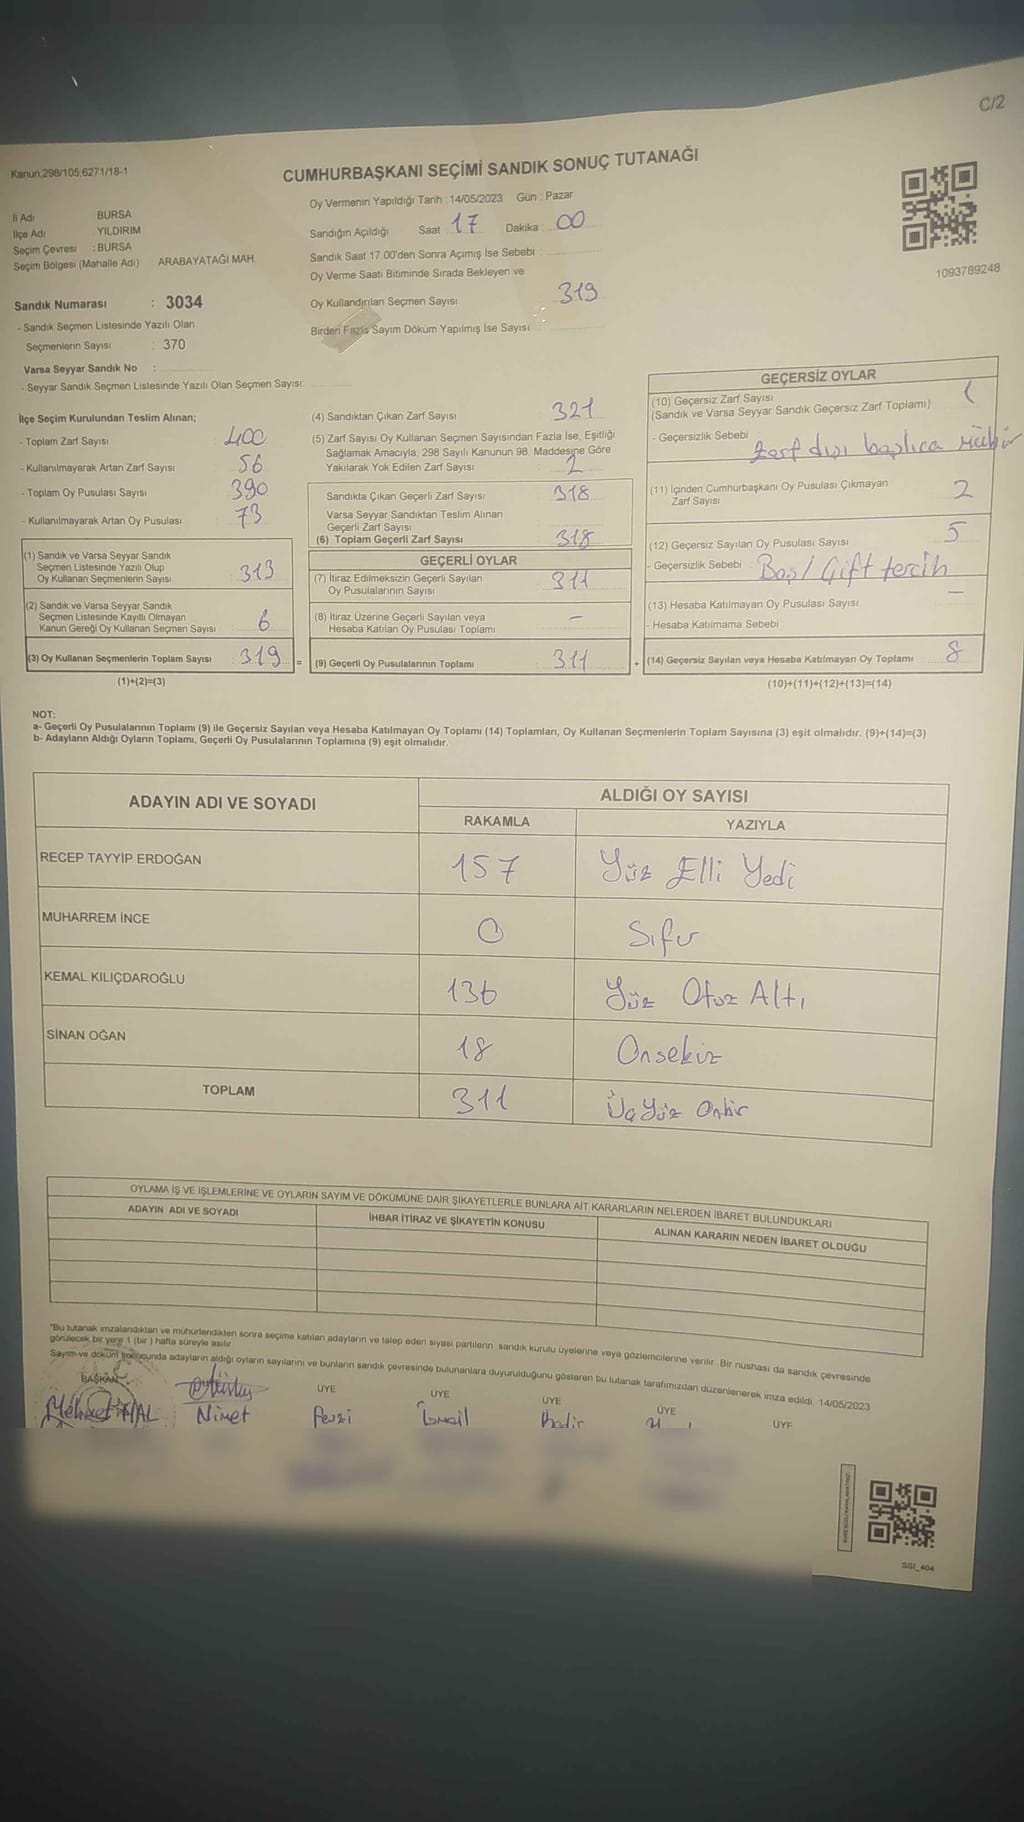 C/2
Kanun:298/105 6271/18-1
CUMHURBAŞKANI SEÇİMİ SANDIK SONUÇ TUTANAĞI
İl Adı BURSA
İlçe Adı YILDIRIM
Seçim Çevresi : BURSA
Seçim Bölgesi (Mahalle Adı) ARABAYATAĞI MAH.
Oy Vermenin Yapıldığı Tarih : 14/05/2023 Gün : Pazar
Sandığın Açıldığı Saat : 17 Dakika : 00
Sandık Saat 17:00'den Sonra Açımış İse Sebebi :
Oy Verme Saati Bitiminde Sırada Bekleyen ve
Oy Kullandırılan Seçmen Sayısı 319
Birden Fazla Sayım Döküm Yapılmış İse Sayısı
1093789248
Sandık Numarası : 3034
- Sandık Seçmen Listesinde Yazılı Olan
Seçmenlerin Sayısı : 370
Varsa Seyyar Sandık No :
- Seyyar Sandık Seçmen Listesinde Yazılı Olan Seçmen Sayısı:
İlçe Seçim Kurulundan Teslim Alınan;
- Toplam Zarf Sayısı : 400
- Kullanılmayarak Artan Zarf Sayısı : 56
- Toplam Oy Pusulası Sayısı : 390
- Kullanılmayarak Artan Oy Pusulası : 73
(1) Sandık ve Varsa Seyyar Sandık
Seçmen Listesinde Yazılı Olup
Oy Kullanan Seçmenlerin Sayısı : 313
(2) Sandık ve Varsa Seyyar Sandık
Seçmen Listesinde Kayıtlı Olmayan
Kanun Gereği Oy Kullanan Seçmen Sayısı : 6
(3) Oy Kullanan Seçmenlerin Toplam Sayısı : 319 =
(1)+(2)=(3)
(4) Sandıktan Çıkan Zarf Sayısı : 321
(5) Zarf Sayısı Oy Kullanan Seçmen Sayısından Fazla İse, Eşitliği
Sağlamak Amacıyla; 298 Sayılı Kanunun 98. Maddesine Göre
Yakılarak Yok Edilen Zarf Sayısı : 2
Sandıkta Çıkan Geçerli Zarf Sayısı : 318
Varsa Seyyar Sandıktan Teslim Alınan
Geçerli Zarf Sayısı :
(6) Toplam Geçerli Zarf Sayısı : 318
GEÇERLİ OYLAR
(7) İtiraz Edilmeksizin Geçerli Sayılan
Oy Pusulalarının Sayısı : 311
(8) İtiraz Üzerine Geçerli Sayılan veya
Hesaba Katılan Oy Pusulası Toplamı : -
(9) Geçerli Oy Pusulalarının Toplamı : 311 +
GEÇERSİZ OYLAR
(10) Geçersiz Zarf Sayısı
(Sandık ve Varsa Seyyar Sandık Geçersiz Zarf Toplamı) 1
- Geçersizlik Sebebi : Zarf dışı başlıca mühür
(11) İçinden Cumhurbaşkanı Oy Pusulası Çıkmayan
Zarf Sayısı 2
(12) Geçersiz Sayılan Oy Pusulası Sayısı : 5
- Geçersizlik Sebebi : Boş / Çift tercih
(13) Hesaba Katılmayan Oy Pusulası Sayısı : -
- Hesaba Katılmama Sebebi :
(14) Geçersiz Sayılan veya Hesaba Katılmayan Oy Toplamı : 8
(10)+(11)+(12)+(13)=(14)
NOT:
a- Geçerli Oy Pusulalarının Toplamı (9) ile Geçersiz Sayılan veya Hesaba Katılmayan Oy Toplamı (14) Toplamları, Oy Kullanan Seçmenlerin Toplam Sayısına (3) eşit olmalıdır. (9)+(14)=(3)
b- Adayların Aldığı Oyların Toplamı, Geçerli Oy Pusulalarının Toplamına (9) eşit olmalıdır.
ADAYIN ADI VE SOYADI ALDIĞI OY SAYISI
RAKAMLA YAZIYLA
RECEP TAYYİP ERDOĞAN 157 Yüz Elli Yedi
MUHARREM İNCE 0 Sıfır
KEMAL KILIÇDAROĞLU 136 Yüz Otuz Altı
SİNAN OĞAN 18 Onsekiz
TOPLAM 311 Üç Yüz Onbir
OYLAMA İŞ VE İŞLEMLERİNE VE OYLARIN SAYIM VE DÖKÜMÜNE DAİR ŞİKAYETLERLE BUNLARA AİT KARARLARIN NELERDEN İBARET BULUNDUKLARI
ADAYIN ADI VE SOYADI İHBAR İTİRAZ VE ŞİKAYETİN KONUSU ALINAN KARARIN NEDEN İBARET OLDUĞU
*Bu tutanak imzalandıktan ve mühürlendikten sonra seçime katılan adayların ve talep eden siyasi partilerin sandık kurulu üyelerine veya gözlemcilerine verilir. Bir nüshası da sandık çevresinde
görülecek bir yere 1 (bir ) hafta süreyle asılır.
Sayım ve döküm sonucunda adayların aldığı oyların sayılarını ve bunların sandık çevresinde bulunanlara duyurulduğunu gösteren bu tutanak tarafımızdan düzenlenerek imza edildi. 14/05/2023
BAŞKAN ÜYE ÜYE ÜYE ÜYE ÜYE
Mehmet Nimet Fevzi İsmail Kadir
SSI_404